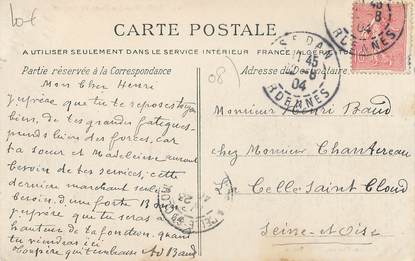 10 €
CARTE POSTALE
A UTILISER SEULEMENT DANS LE SERVICE INTÉRIEUR FRANCE ALGÉRIE
Partie réservée à la Correspondance
Adresse du Destinataire
08)
Mon cher Henri
J'espère que tu te reposes
bien, de tes grandes fatigues
prends bien des forces, car
ta sœur et Madeleine auront
besoin de tes services, cette
dernière marchant seule
besoin d'une forte
J'espère que tu seras
hauteur de ta fonction, quand
tu viendras ici
Ton père qui t'embrasse Ad Baud
Monsieur Henri Baud
chez Monsieur Chantereau
La Celle Saint Cloud
Seine-et-Oise
SEDAN
45
8
04
ARDENNES